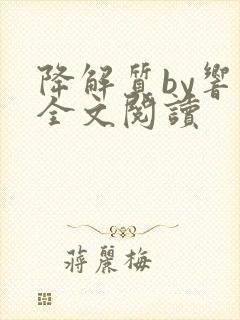 降解質by響
全文閱讀
蔣麗梅